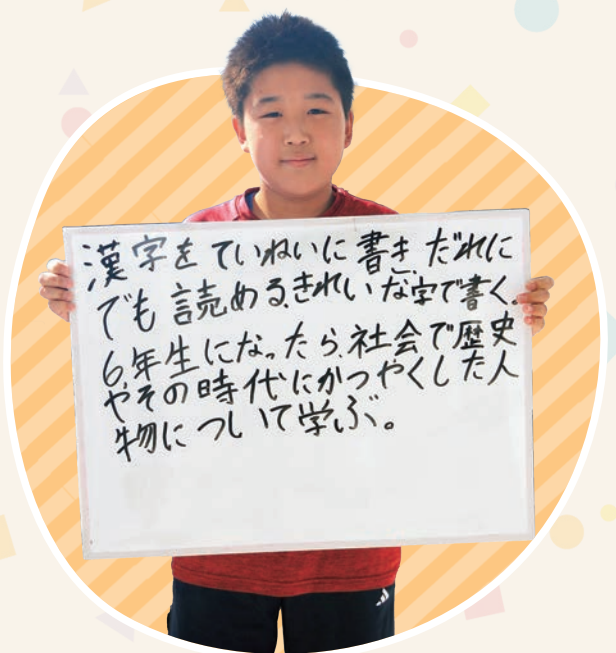 漢字をていねいに書き、だれに
でも読める、きれいな字で書く。
6年生になったら、社会で歴史
やその時代にかつやくした人
物について学ぶ。